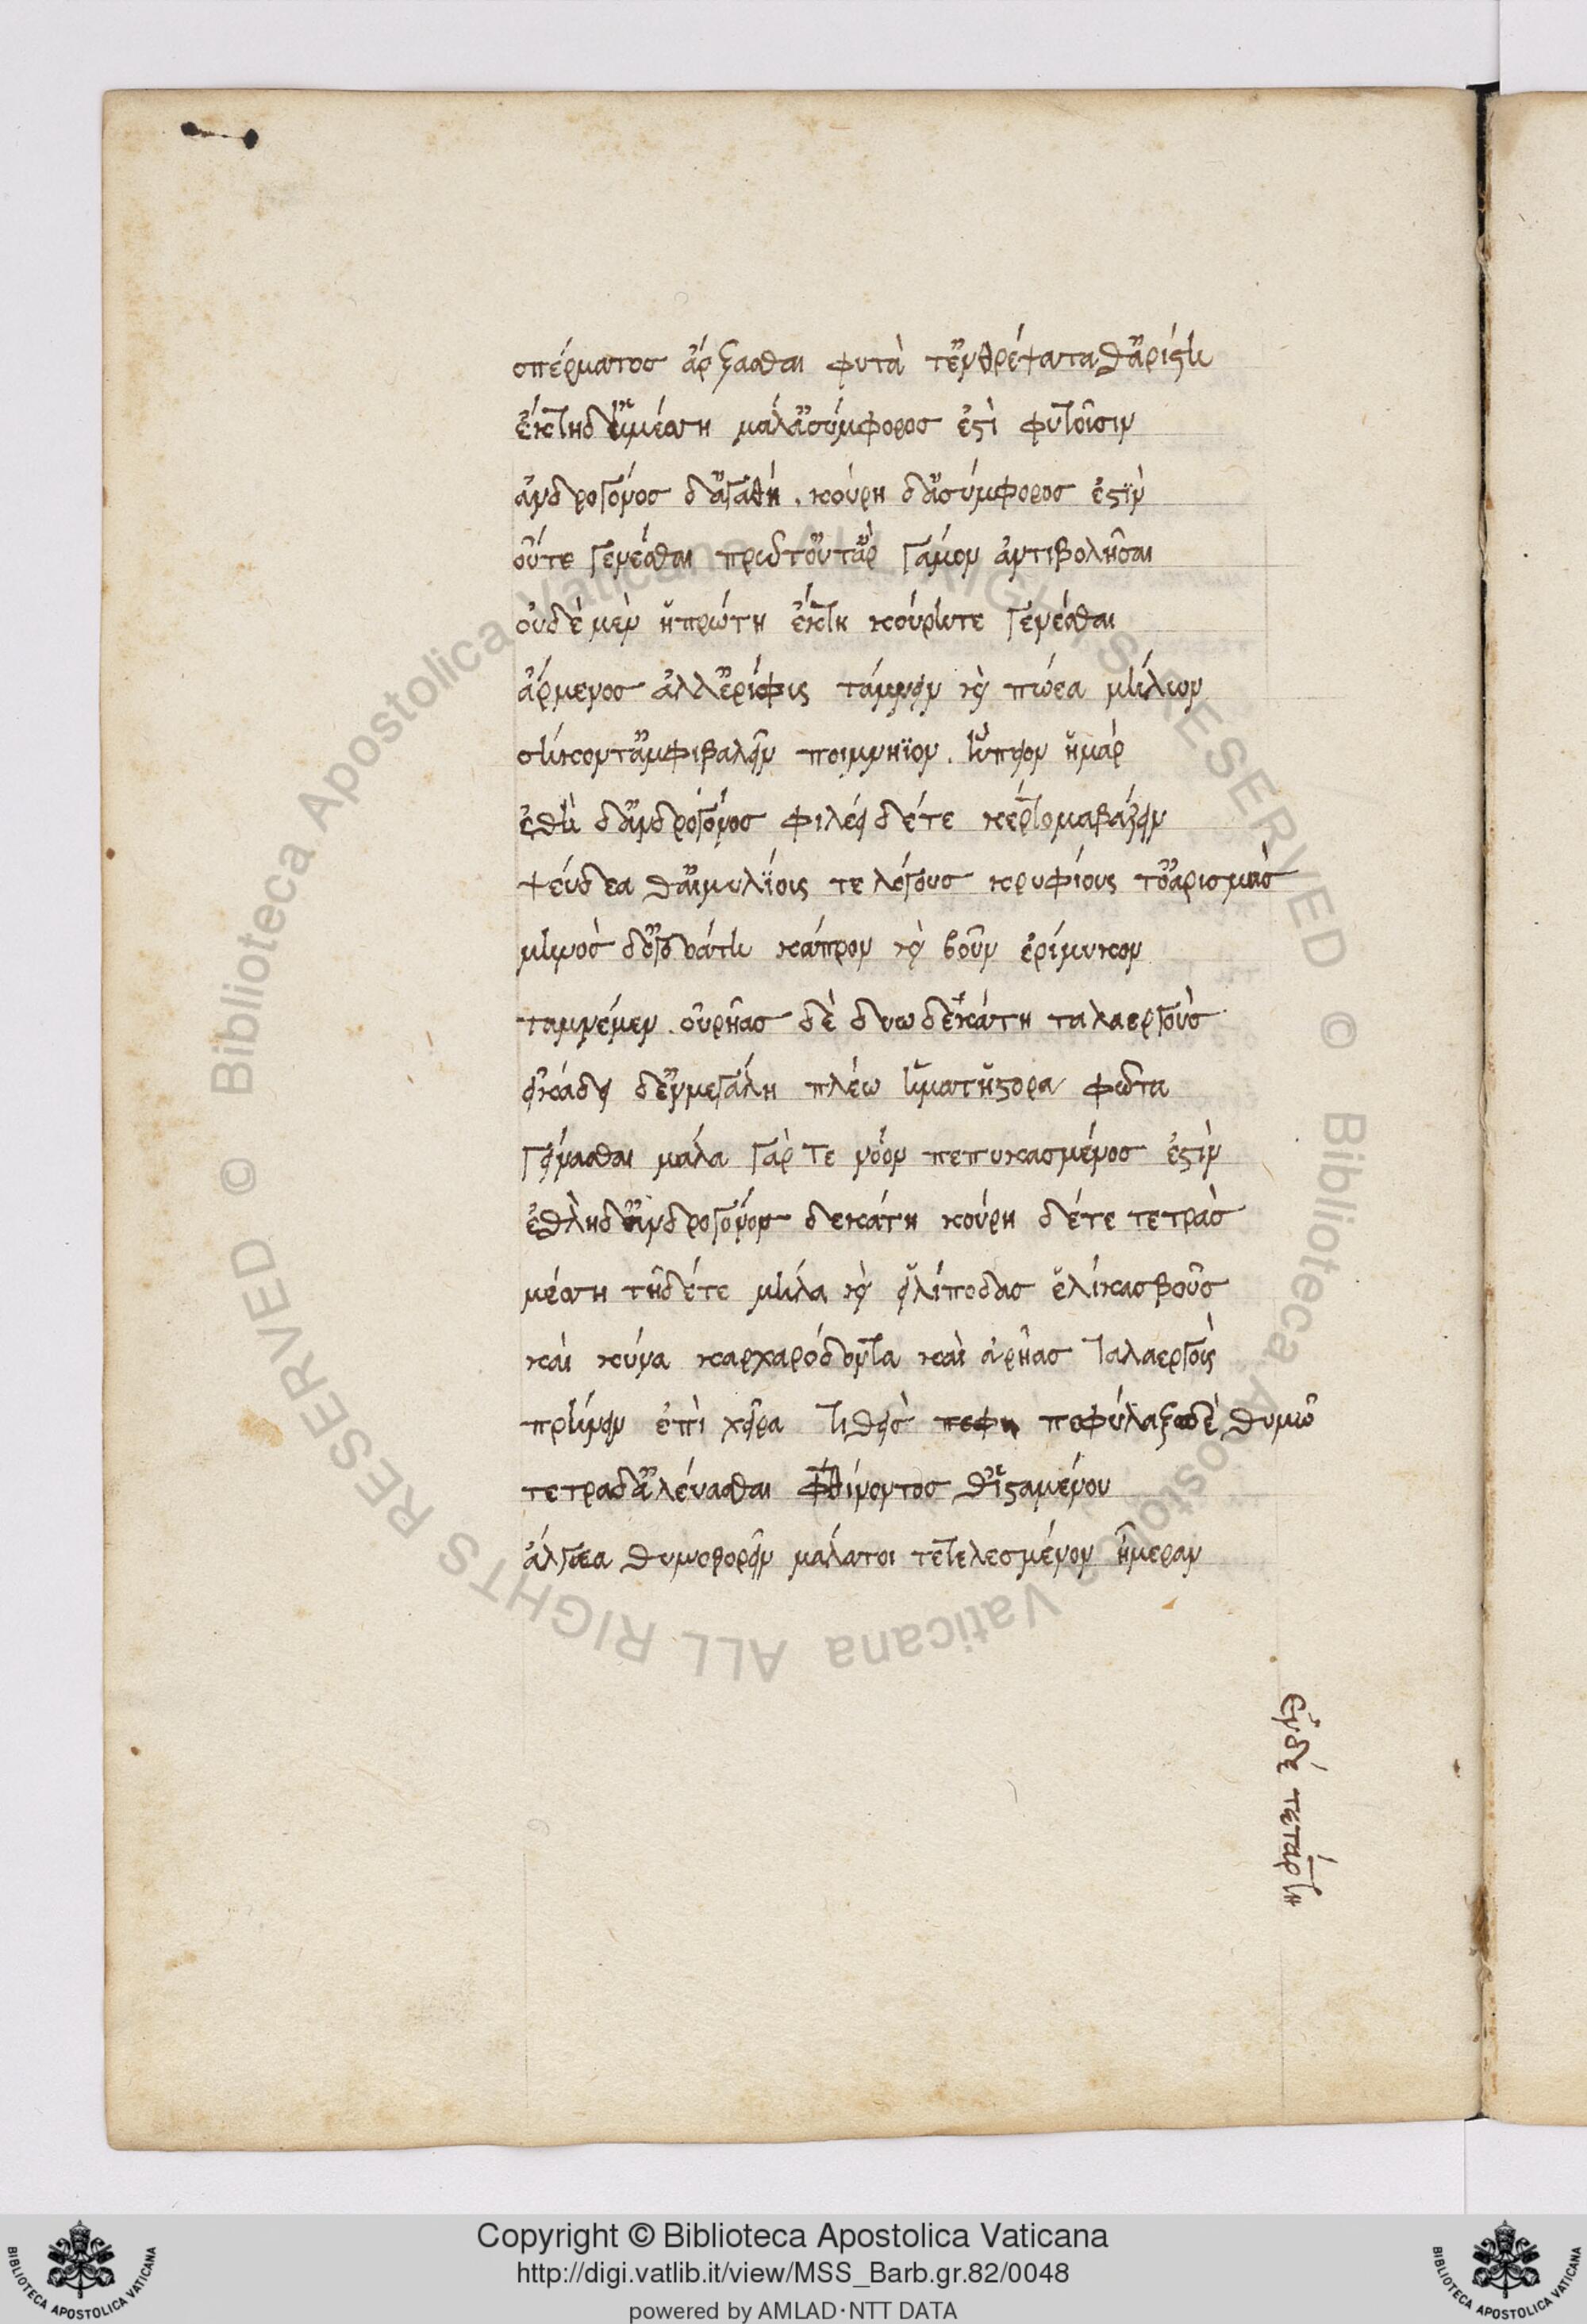 σπέρματος ἄρξασθαι φυτὰ τ' ἐνθρέψασθαι ἀρίστη
ἕκτη δ' ἡ μέσση μάλ' ἀσύμφορος ἐστὶ φυτοῖσιν
ἀνδρογόνος δ' ἀγαθὴ . κούρη δ' ἀσύμφορος ἐστὶν
οὔτε γενέσθαι πρῶτ' οὔτ' ἂρ γάμον ἀντιβολῆσαι
οὐδὲ μὲν ἡ πρώτη ἕκτη κούρη τε γενέσθαι
ἄρμενος ἀλλ' ἐρίφις τάμνειν καὶ πώεα μήλων
σήκον τ' ἀμφιβαλεῖν ποιμνήϊον . ἤπιον ἦμαρ
ἐσθλὴ δ' ἀνδρογόνος φιλέει δέ τε κέρτομα βάζειν
ψεύδεα θ' αἱμυλίοις τε λόγους κρυφίους τ' ὀαρισμοὺς
μηνὸς δ' ὀγδοάτη κάπρον καὶ βοῦν ἐρίμυκον
ταμνέμεν . οὐρῆας δὲ δυωδεκάτη ταλαεργοὺς
εἰκάδι δ' ἐν μεγάλη πλέω ἤματι ἵστορα φῶτα
γείνασθαι μάλα γάρ τε νόον πεπυκασμένος ἐστὶν
ἐσθλὴ δ' ἀνδρογόνος δεκάτη κούρη δέ τε τετρὰς
μέσση τῇ δέ τε μῆλα καὶ εἰλίποδας ἕλικας βοῦς
καὶ κύνα καρχαρόδοντα καὶ οὐρῆας ταλαεργοὺς
πρηΰνειν ἐπὶ χεῖρα τιθεὶς πεφύλαξο δὲ θυμῷ
τετράδ' ἀλεύασθαι φθίνοντος θ' ἱσταμένου
ἄλγεα θυμοβορεῖν μάλα τοι τετελεσμένον ἡμεραν
ἐν δὲ τετάρτη
Copyright © Biblioteca Apostolica Vaticana
http://digi.vatlib.it/view/MSS_Barb.gr.82/0048
powered by AMLAD·NTT DATA